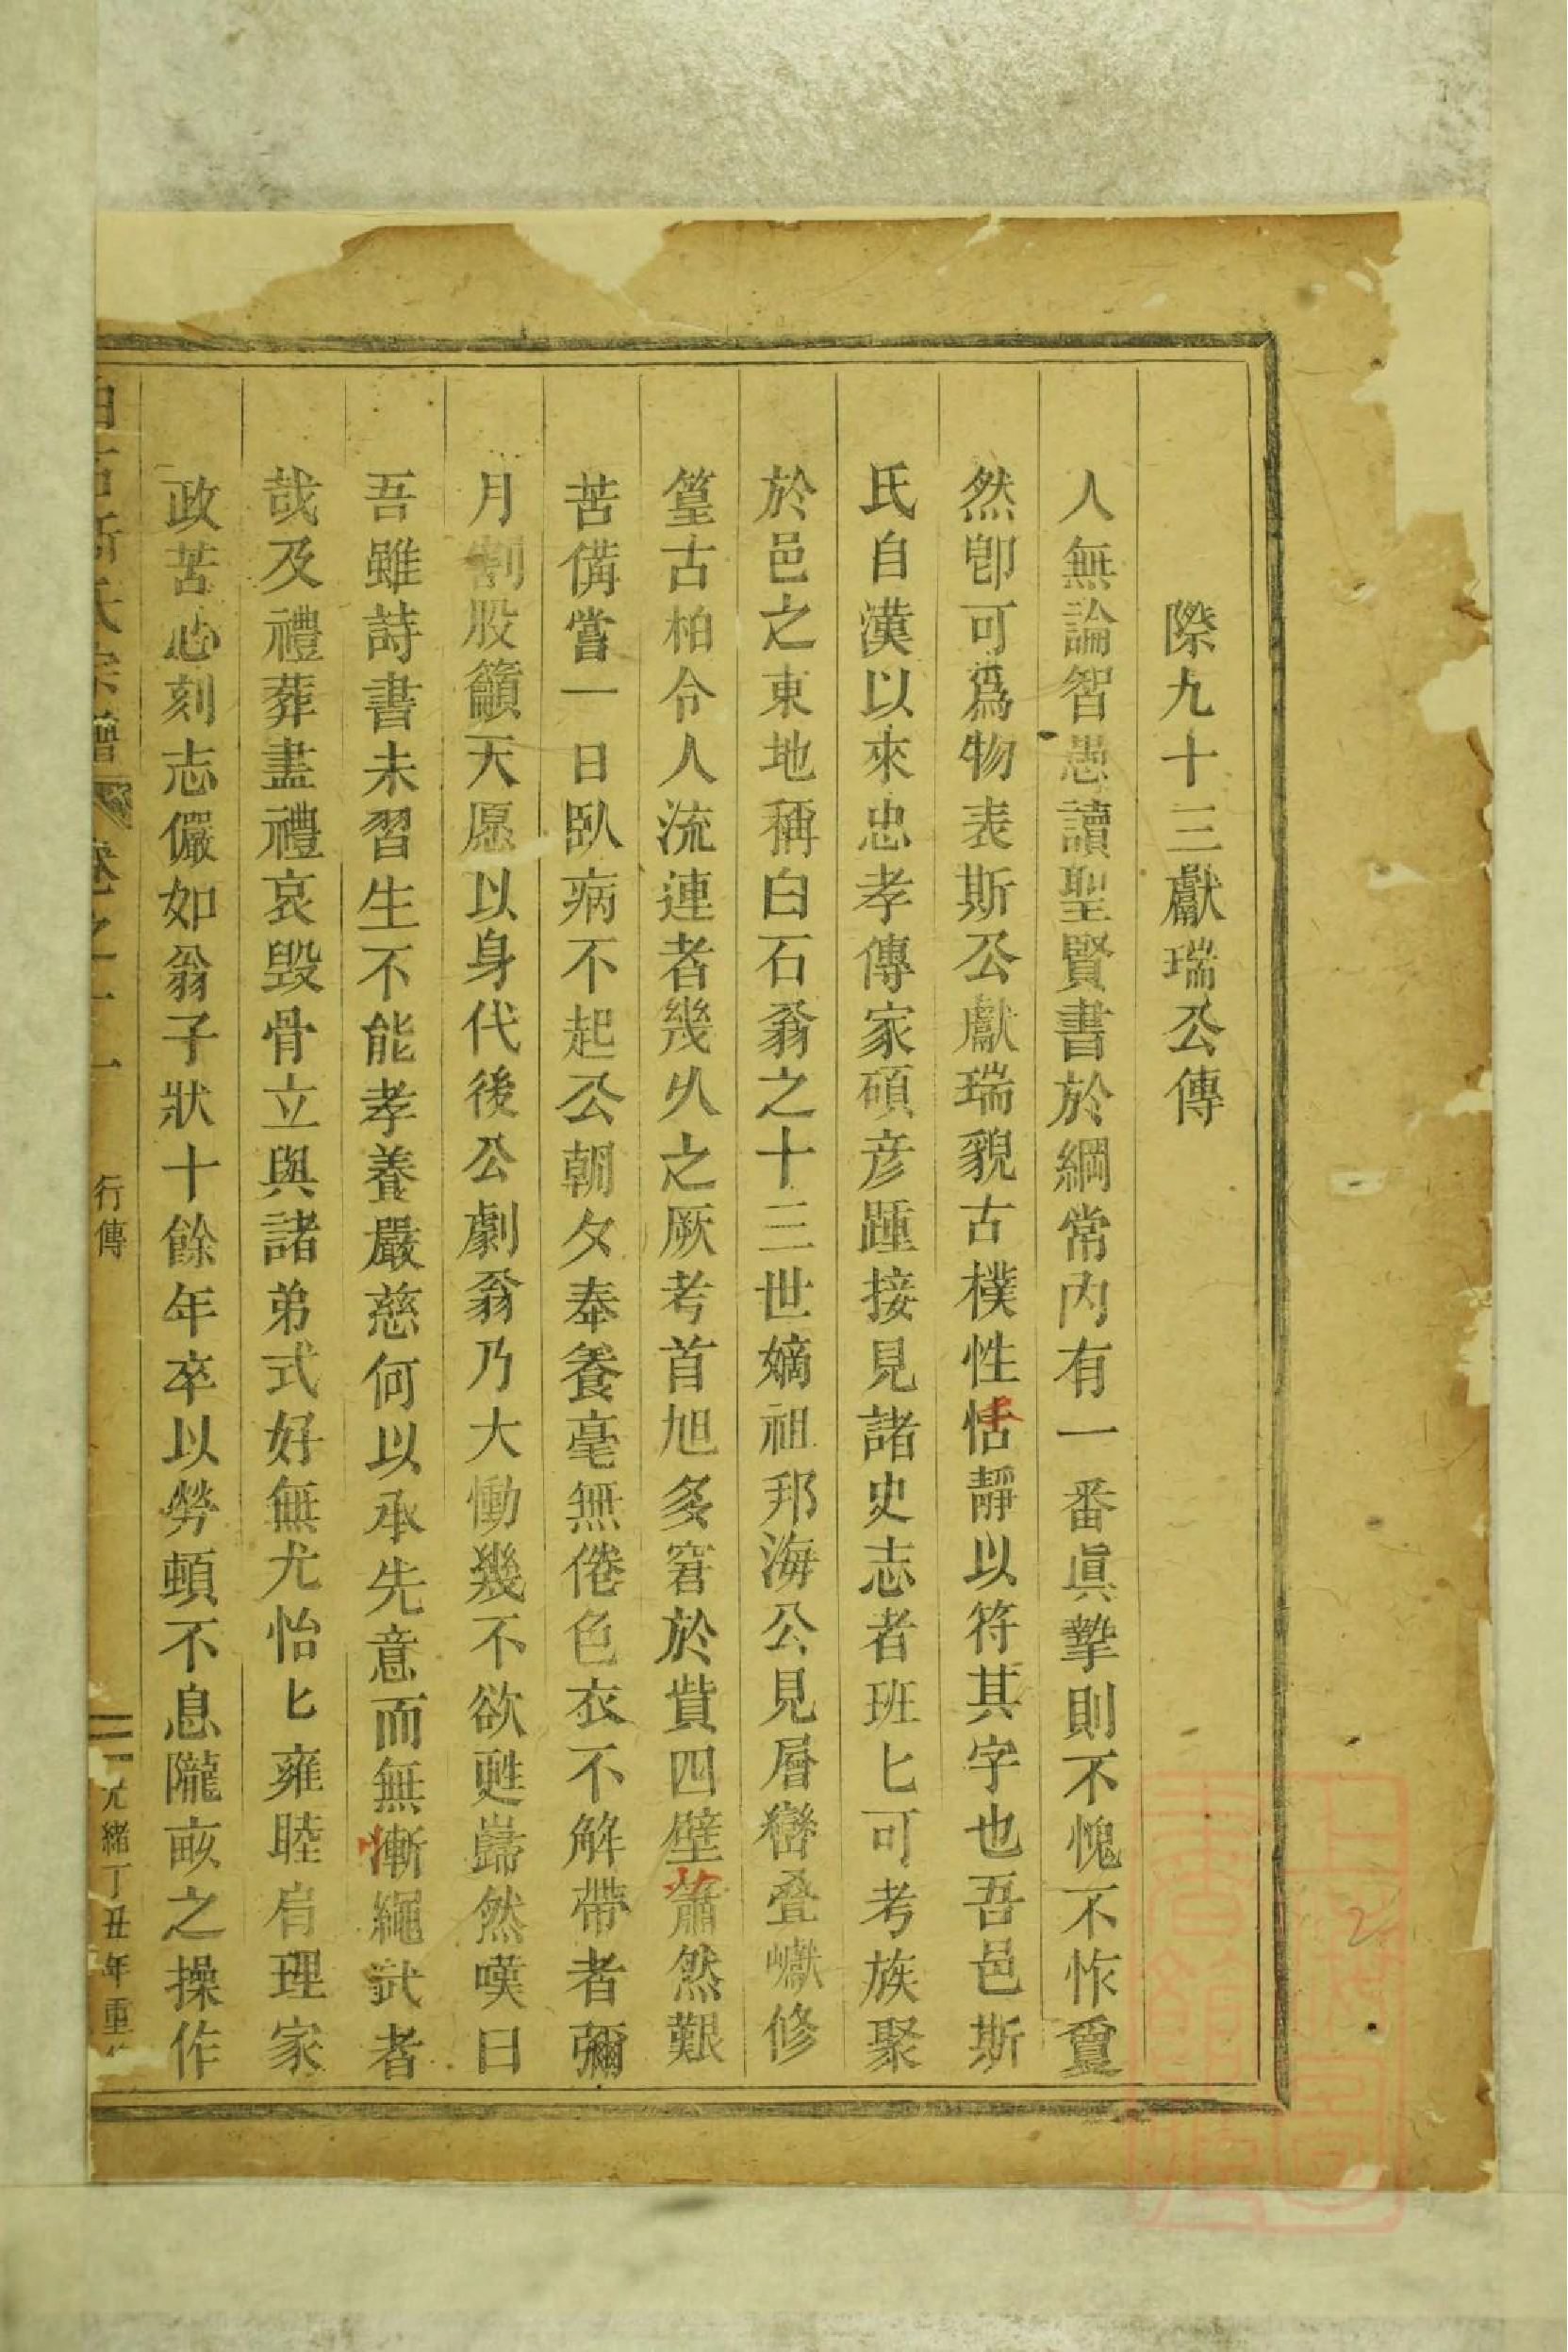 際九十三獻瑞公傳
人無論智愚讀聖賢書於綱常內有一番眞摯則不愧不怍亶
然卽可爲物表斯公獻瑞貌古樸性恬靜以符其字也吾邑斯
氏自漢以來忠孝傳家碩彥踵接見諸史志者班匕可考族聚
於邑之東地稱白石翁之十三世嫡祖邦海公見層巒叠巘修
篁古柏令人流連者幾久之厥考首旭多窘於貲四壁蕭然艱
苦備嘗一日臥病不起公朝夕奉養毫無倦色衣不解帶者彌
月割股籲天愿以身代後公劇翁乃大慟幾不欲甦歸然嘆曰
吾雖詩書未習生不能孝養嚴慈何以承先意而無慚繩武者
哉及禮葬盡禮哀毀骨立與諸弟式好無尤怡匕雍睦肩理家
政苦心刻志儼如翁子狀十餘年卒以勞頓不息隴畝之操作
白石斯氏宗譜 卷之十一 行傳 光緒丁丑年重